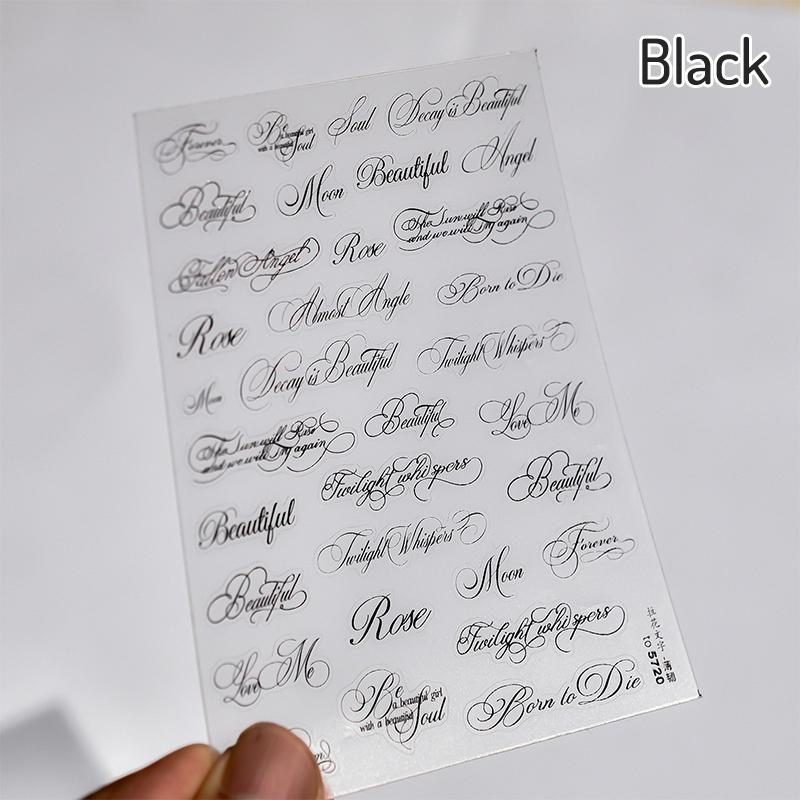 Black
Forever
Be a beautiful girl with a beautiful Soul
Soul
Decay is Beautiful
Beautiful
Moon
Beautiful
Angel
Fallen Angel
Rose
The Sun will Rise
and we will try again
Rose
Almost Angle
Born to Die
Moon
Decay is Beautiful
Twilight Whispers
The Sun will Rise
and we will try again
Beautiful
Love Me
Twilight whispers
Beautiful
Beautiful
Twilight Whispers
Moon
Forever
Beautiful
Rose
Twilight whispers
Love Me
Be
a beautiful girl
with a beautiful
Soul
Born to Die
拉花文字
TO 5720